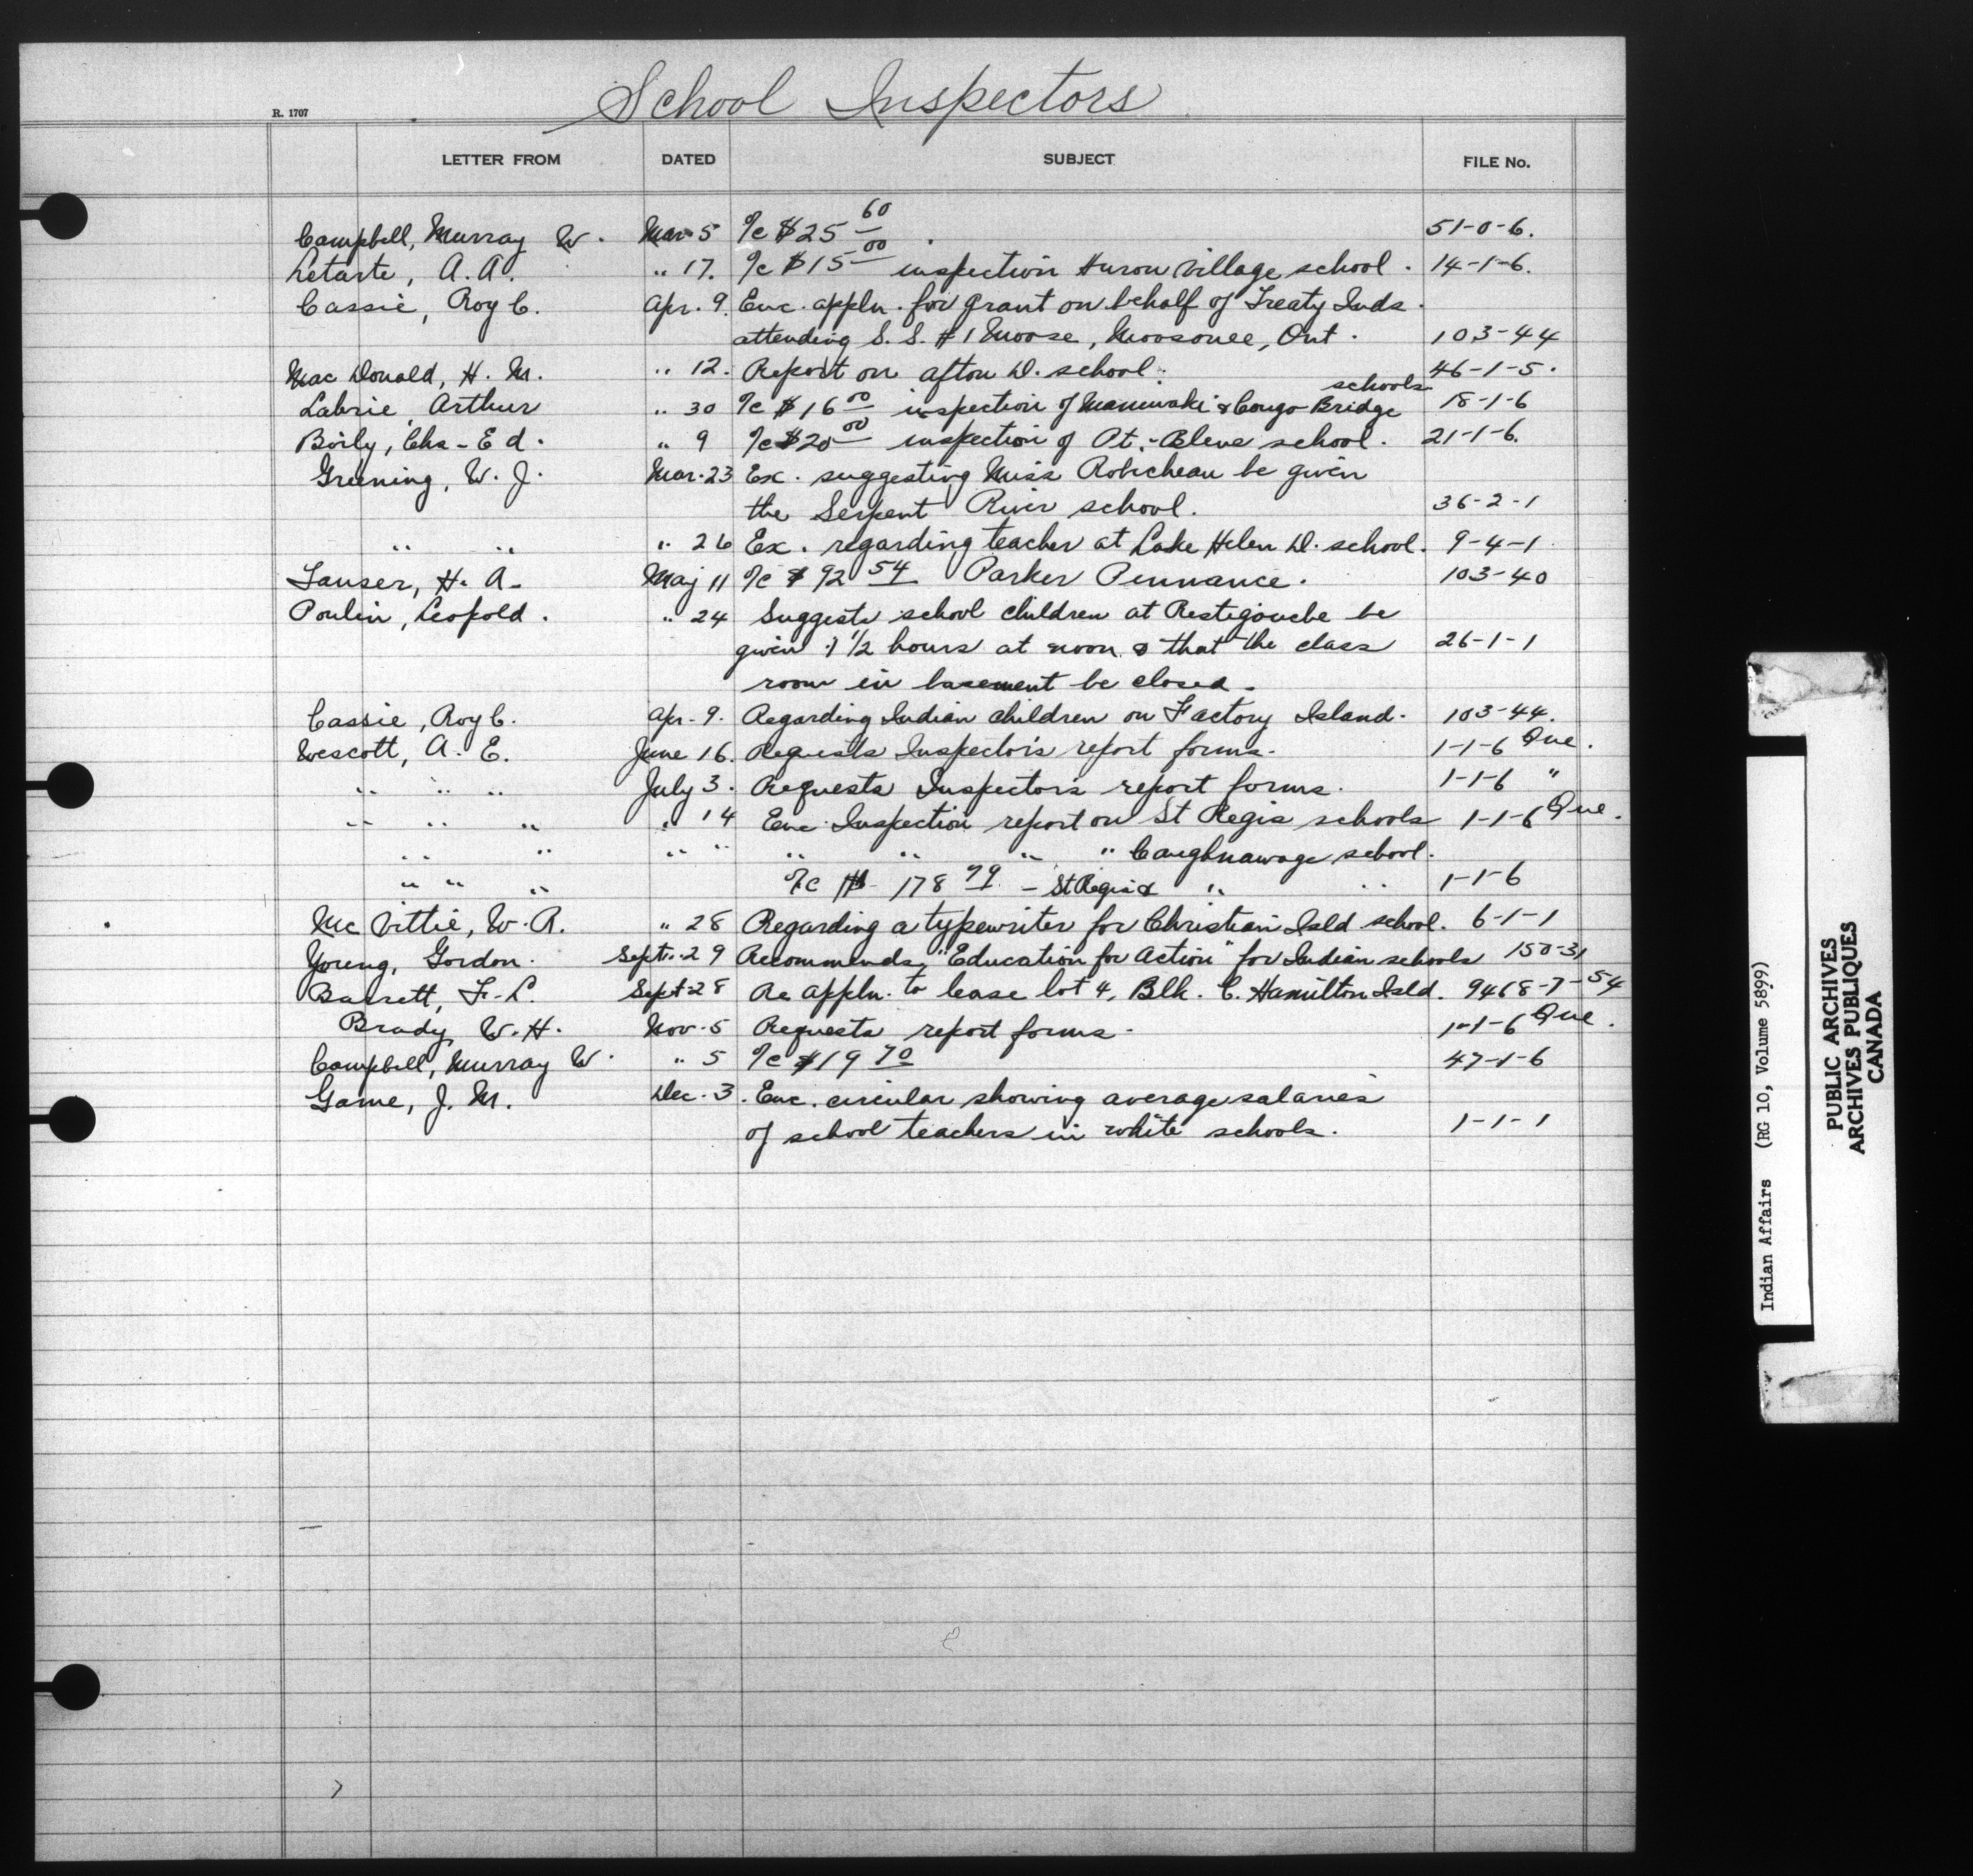 School Inspectors
R. 1707
LETTER FROM DATED SUBJECT FILE No.
Campbell, Murray W. Mar 5 %c $25 60 51-0-6.
Letarte, A. A. " 17. %c $15 00 inspection Huron Village school. 14-1-6.
Cassie, Roy C. Apr. 9. Enc. appln. for grant on behalf of Treaty Inds.
attending S. S. #1 Moose, Moosonee, Ont. 103-44
Mac Donald, H. M. " 12. Report on Afton D. school. 46-1-5.
Labrie, Arthur " 30 %c $16 00 inspection of Maniwaki & Congo Bridge schools 18-1-6
Boily, Chs-Ed. " 9 %c $20 00 inspection of Pt.-Bleue school. 21-1-6.
Greening, W. J. Mar. 23 Ex. suggesting Miss Robicheau be given
the Serpent River school. 36-2-1
" " " 26 Ex. regarding teacher at Lake Helen D. school. 9-4-1
Tanser, H. A. May 11 %c $92 54 Parker Pennance. 103-40
Poulin, Leopold. " 24 Suggests school children at Restigouche be
given 1 1/2 hours at noon & that the class 26-1-1
room in basement be closed.
Cassie, Roy C. Apr. 9. Regarding Indian children on Factory Island. 103-44.
Wescott, A. E. June 16. Requests Inspectors report forms. 1-1-6 Que.
" " " July 3. Requests Inspectors report forms. 1-1-6 "
" " " " 14 Enc Inspection report on St Regis schools 1-1-6 Que.
" " " " " " " " Caughnawaga school.
" " " %c $178 79 - St Regis & " " 1-1-6
Mc Vittie, W. A. " 28 Regarding a typewriter for Christian Isld school. 6-1-1
Young, Gordon. Sept. 29 Recommends "Education for Action" for Indian schools 150-31
Barrett, F. L. Sept 28 Re appln. to lease lot 4, Blk. C. Hamilton Isld. 9468-7-54
Brady, W. H. Nov. 5 Requests report forms. 1-1-6 Que.
Campbell, Murray W. " 5 %c $19 70 47-1-6
Game, J. M. Dec. 3. Enc. circular showing average salaries
of school teachers in white schools. 1-1-1
Indian Affairs (RG 10, Volume 5899)
PUBLIC ARCHIVES
ARCHIVES PUBLIQUES
CANADA